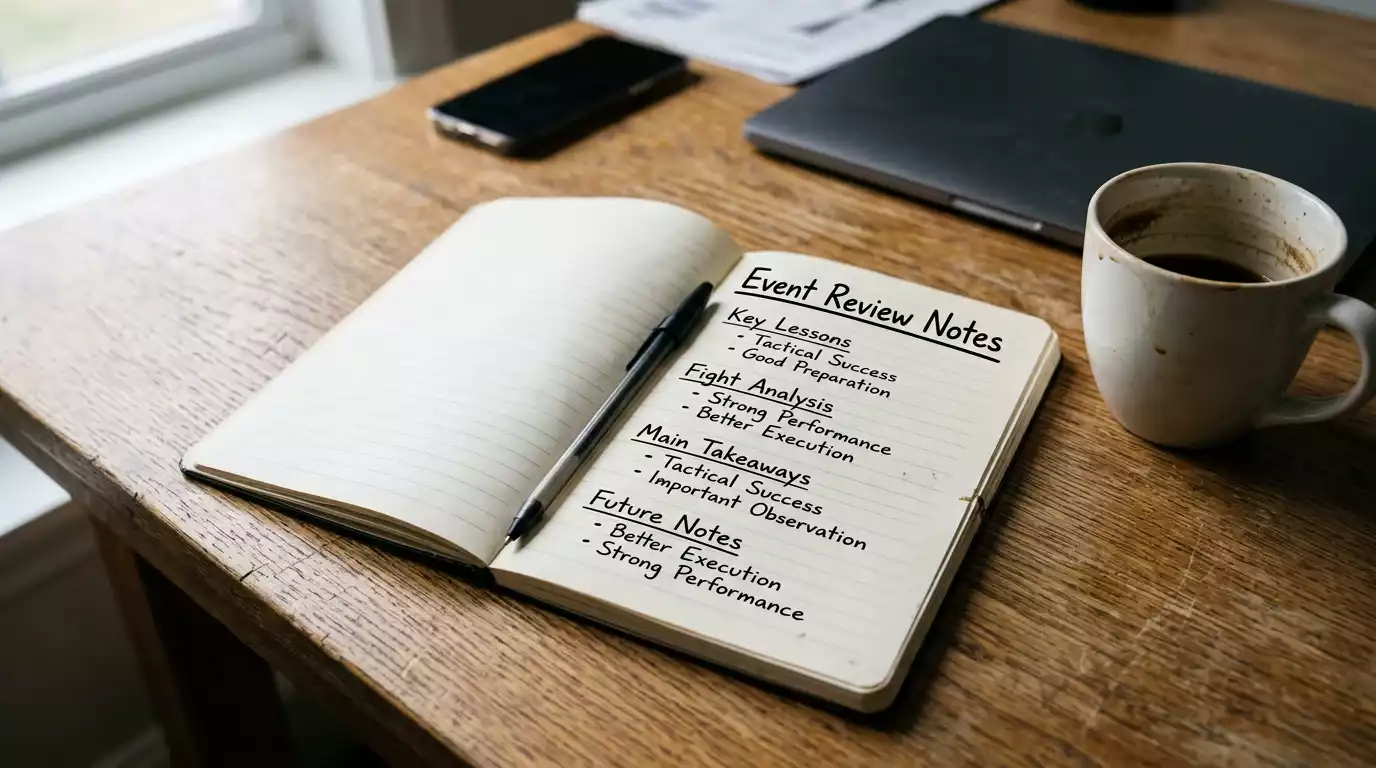 Event Review Notes
Key Lessons
- Tactical Success
- Good Preparation
Fight Analysis
- Strong Performance
- Better Execution
Main Takeaways
- Tactical Success
- Important Observation
Future Notes
- Better Execution
- Strong Performance